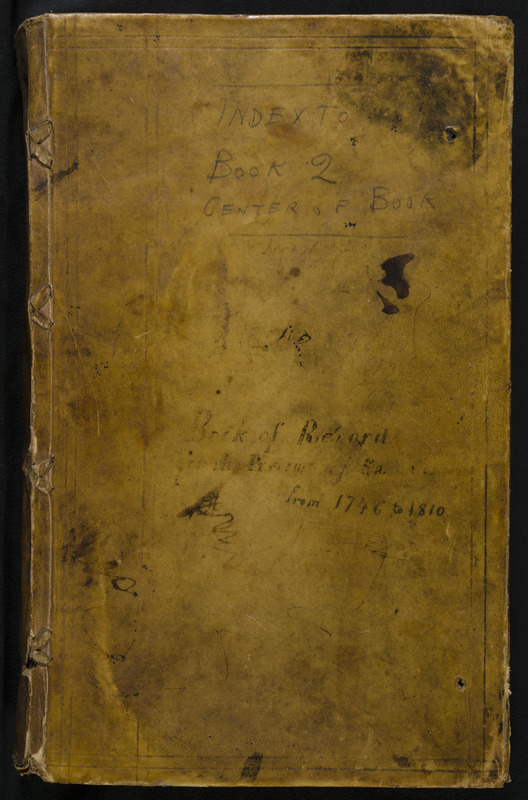 INDEX TO
BOOK 2
CENTER OF BOOK
Book of Record
for the Precinct of
from 1746 to 1810